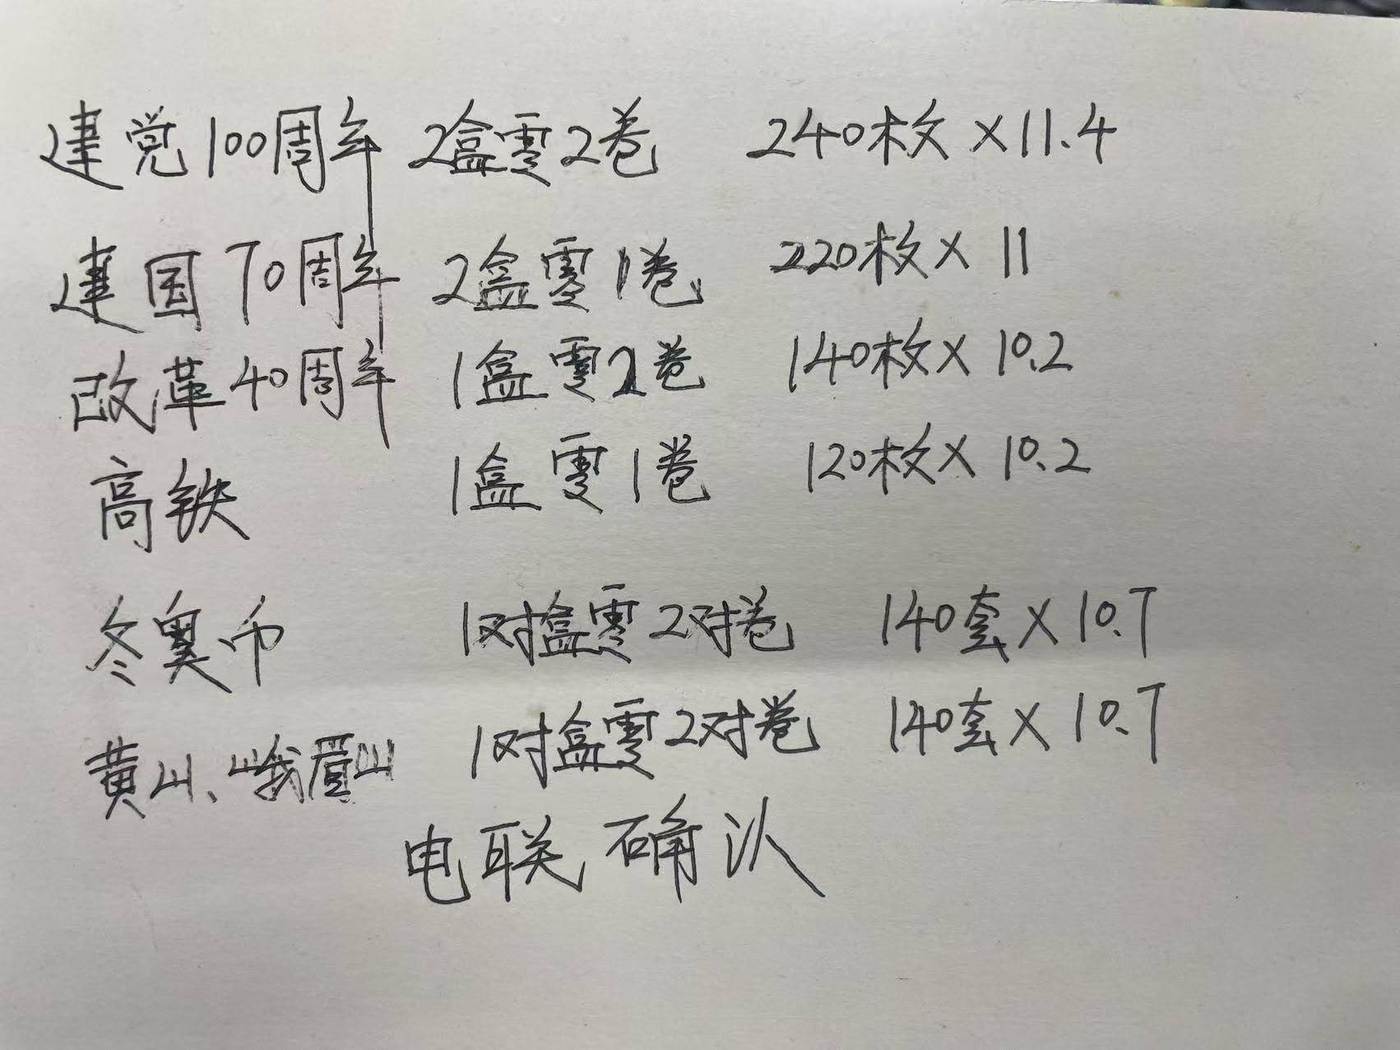 建党100周年 2盒零2卷 240枚×11.4
建国70周年 2盒零1卷 220枚×11
改革40周年 1盒零2卷 140枚×10.2
高铁 1盒零1卷 120枚×10.2
冬奥币 1对盒零2对卷 140套×10.7
黄山、峨眉山 1对盒零2对卷 140套×10.7
电联确认